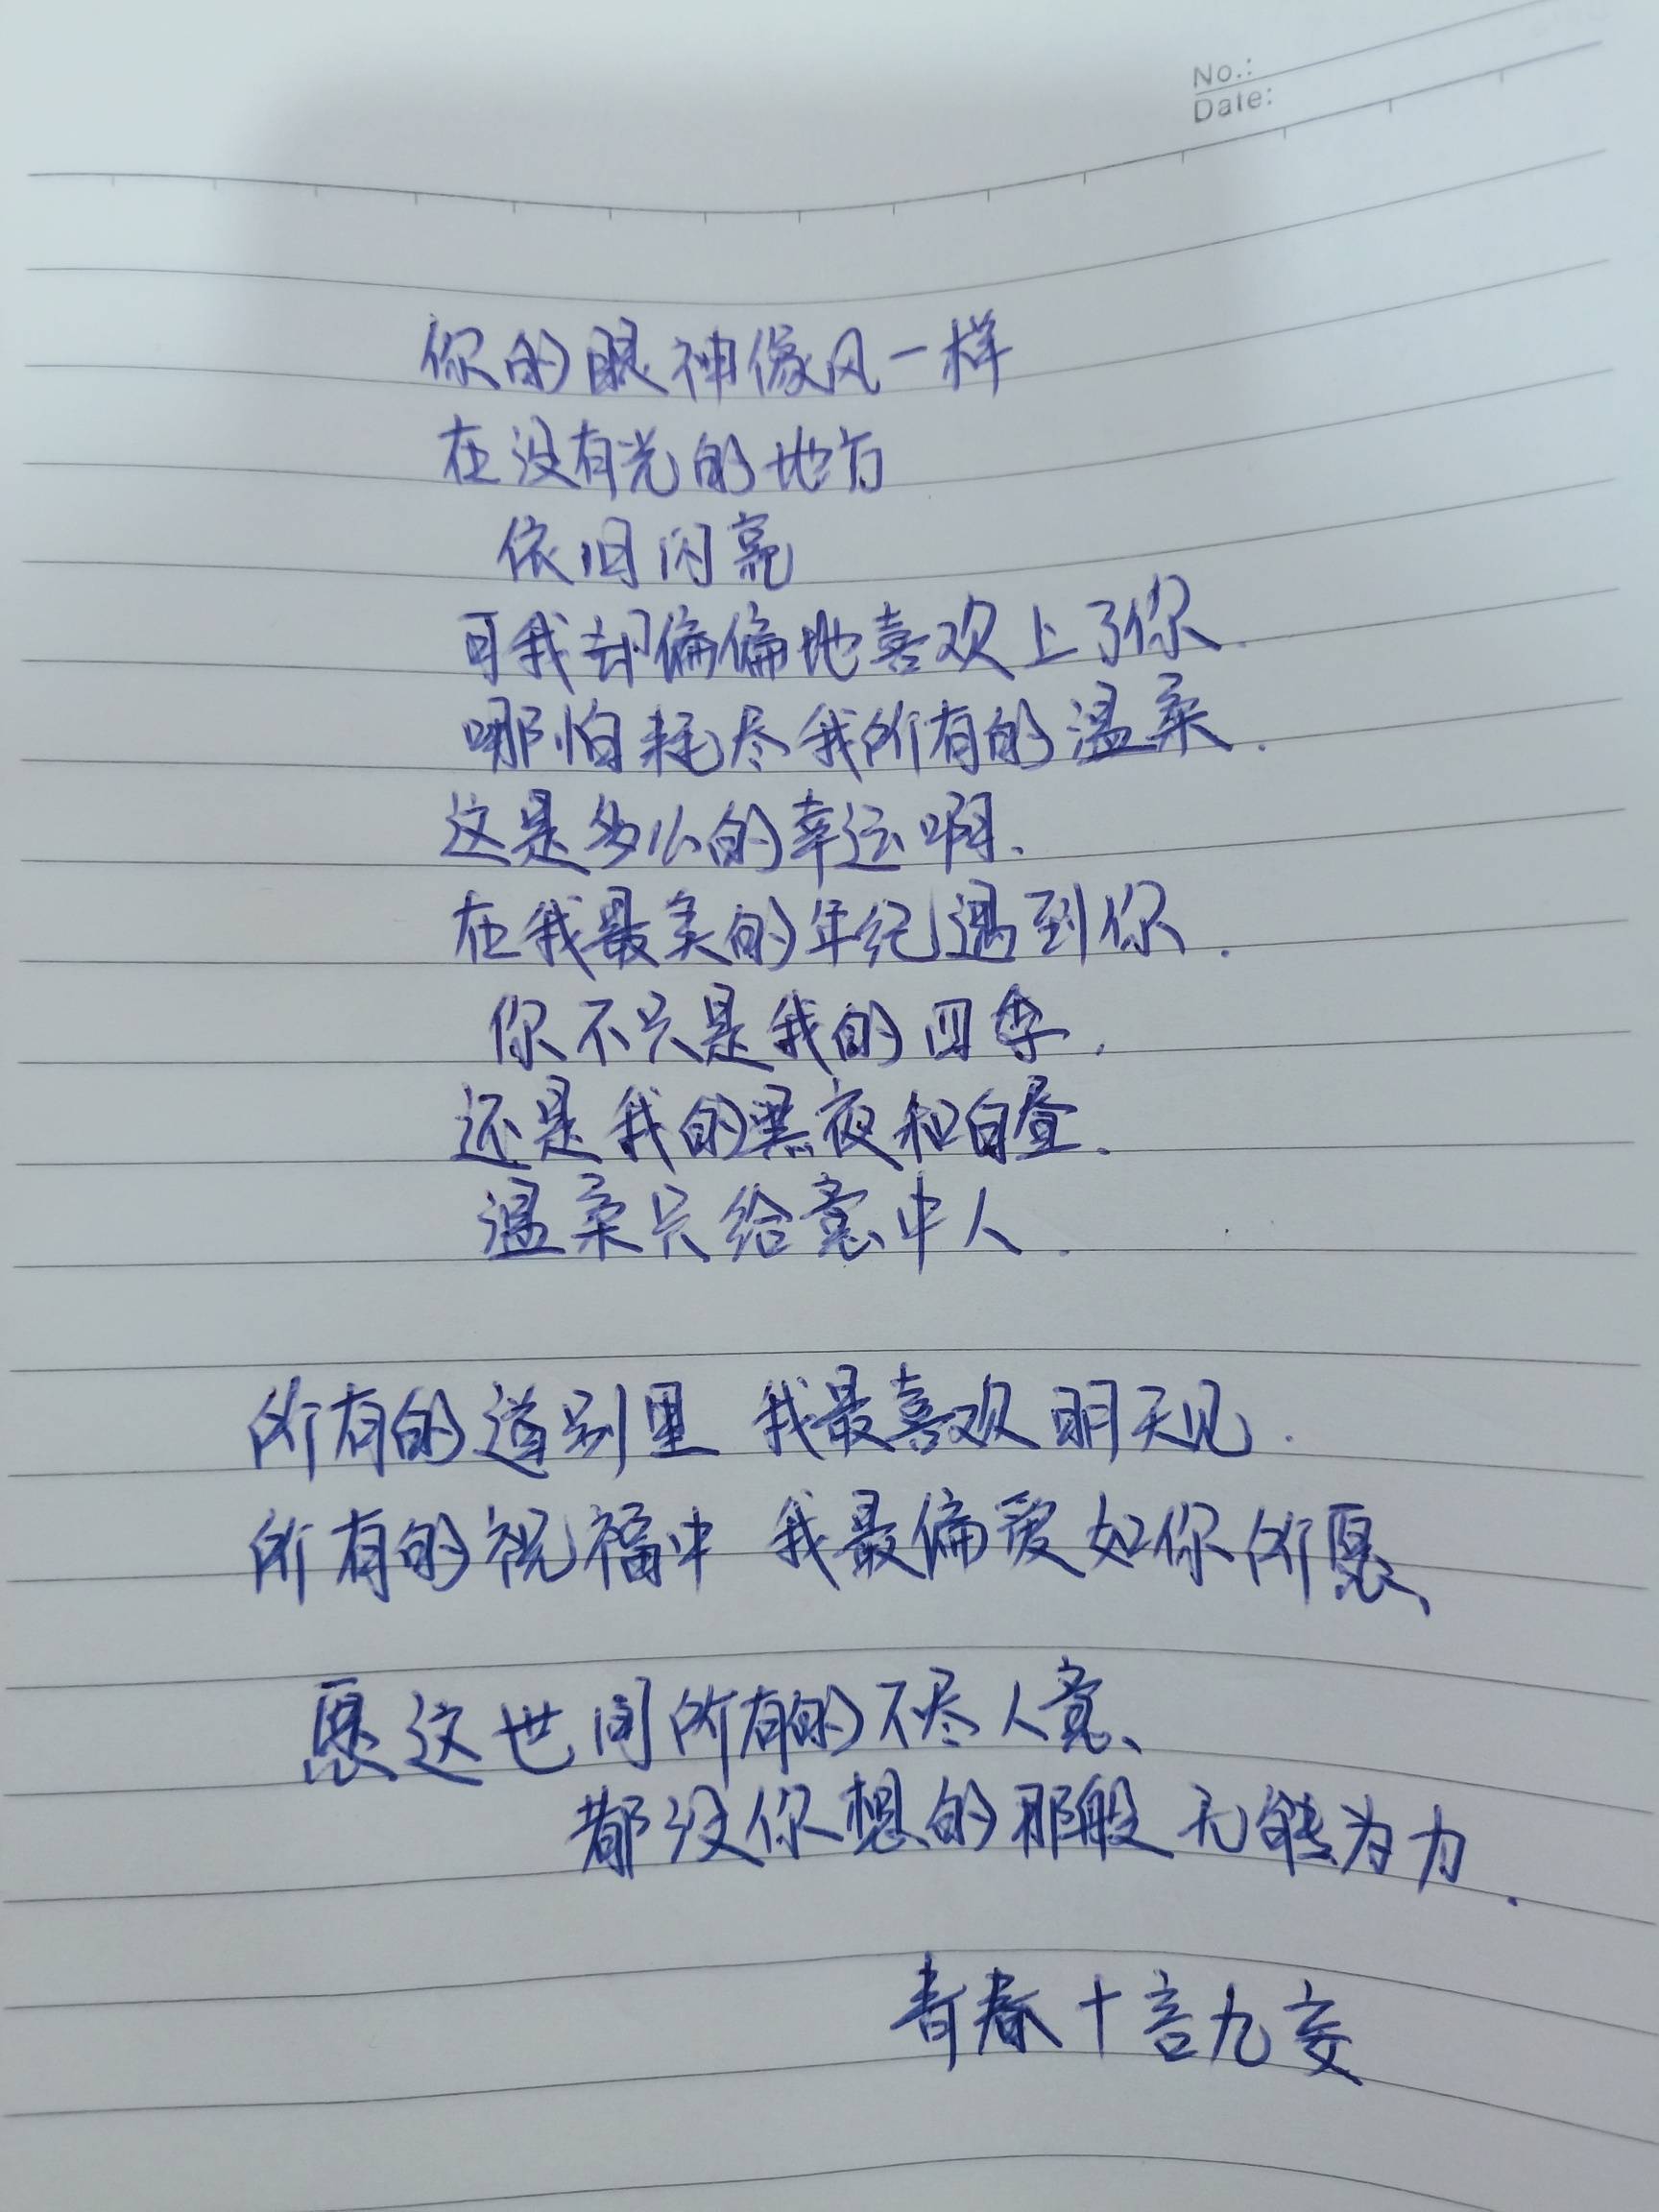 No.:
Date:
你的眼神像风一样
在没有光的地方
依旧闪亮
可我却偏偏地喜欢上了你.
哪怕耗尽我所有的温柔.
这是多么的幸运啊、
在我最美的年纪遇到你.
你不只是我的四季.
还是我的黑夜和白昼.
温柔只给意中人.
所有的道别里 我最喜欢明天见.
所有的祝福中 我最偏爱如你所愿、
愿这世间所有的不尽人意、
都没你想的那般无能为力.
青春十言九变